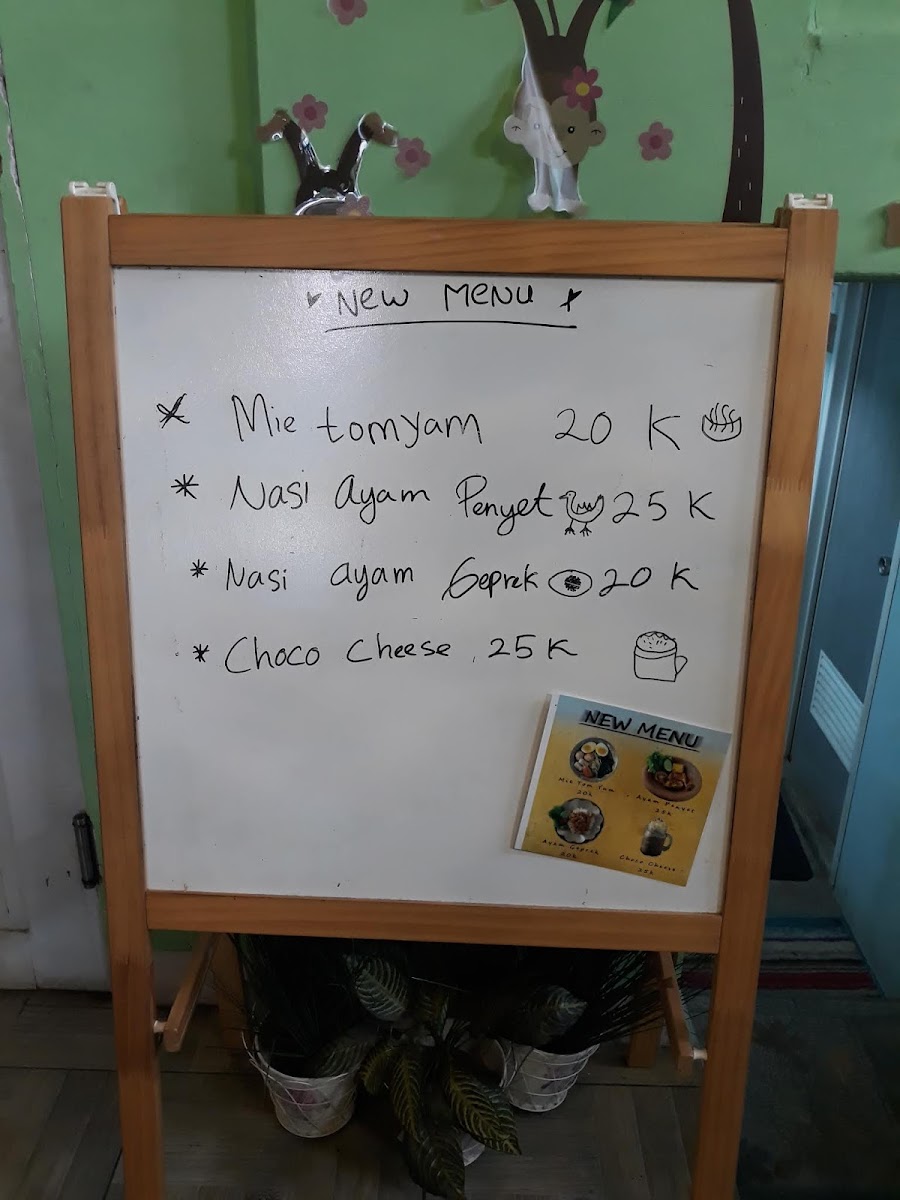 New Menu
Mie tomyam 20 K
Nasi Ayam Penyet 25 K
Nasi ayam Geprek 20 K
Choco Cheese 25 K
NEW MENU
Mie Tom Yum
20k
Ayam Penyet
25k
Ayam Geprek
20k
Choco Cheese
25k